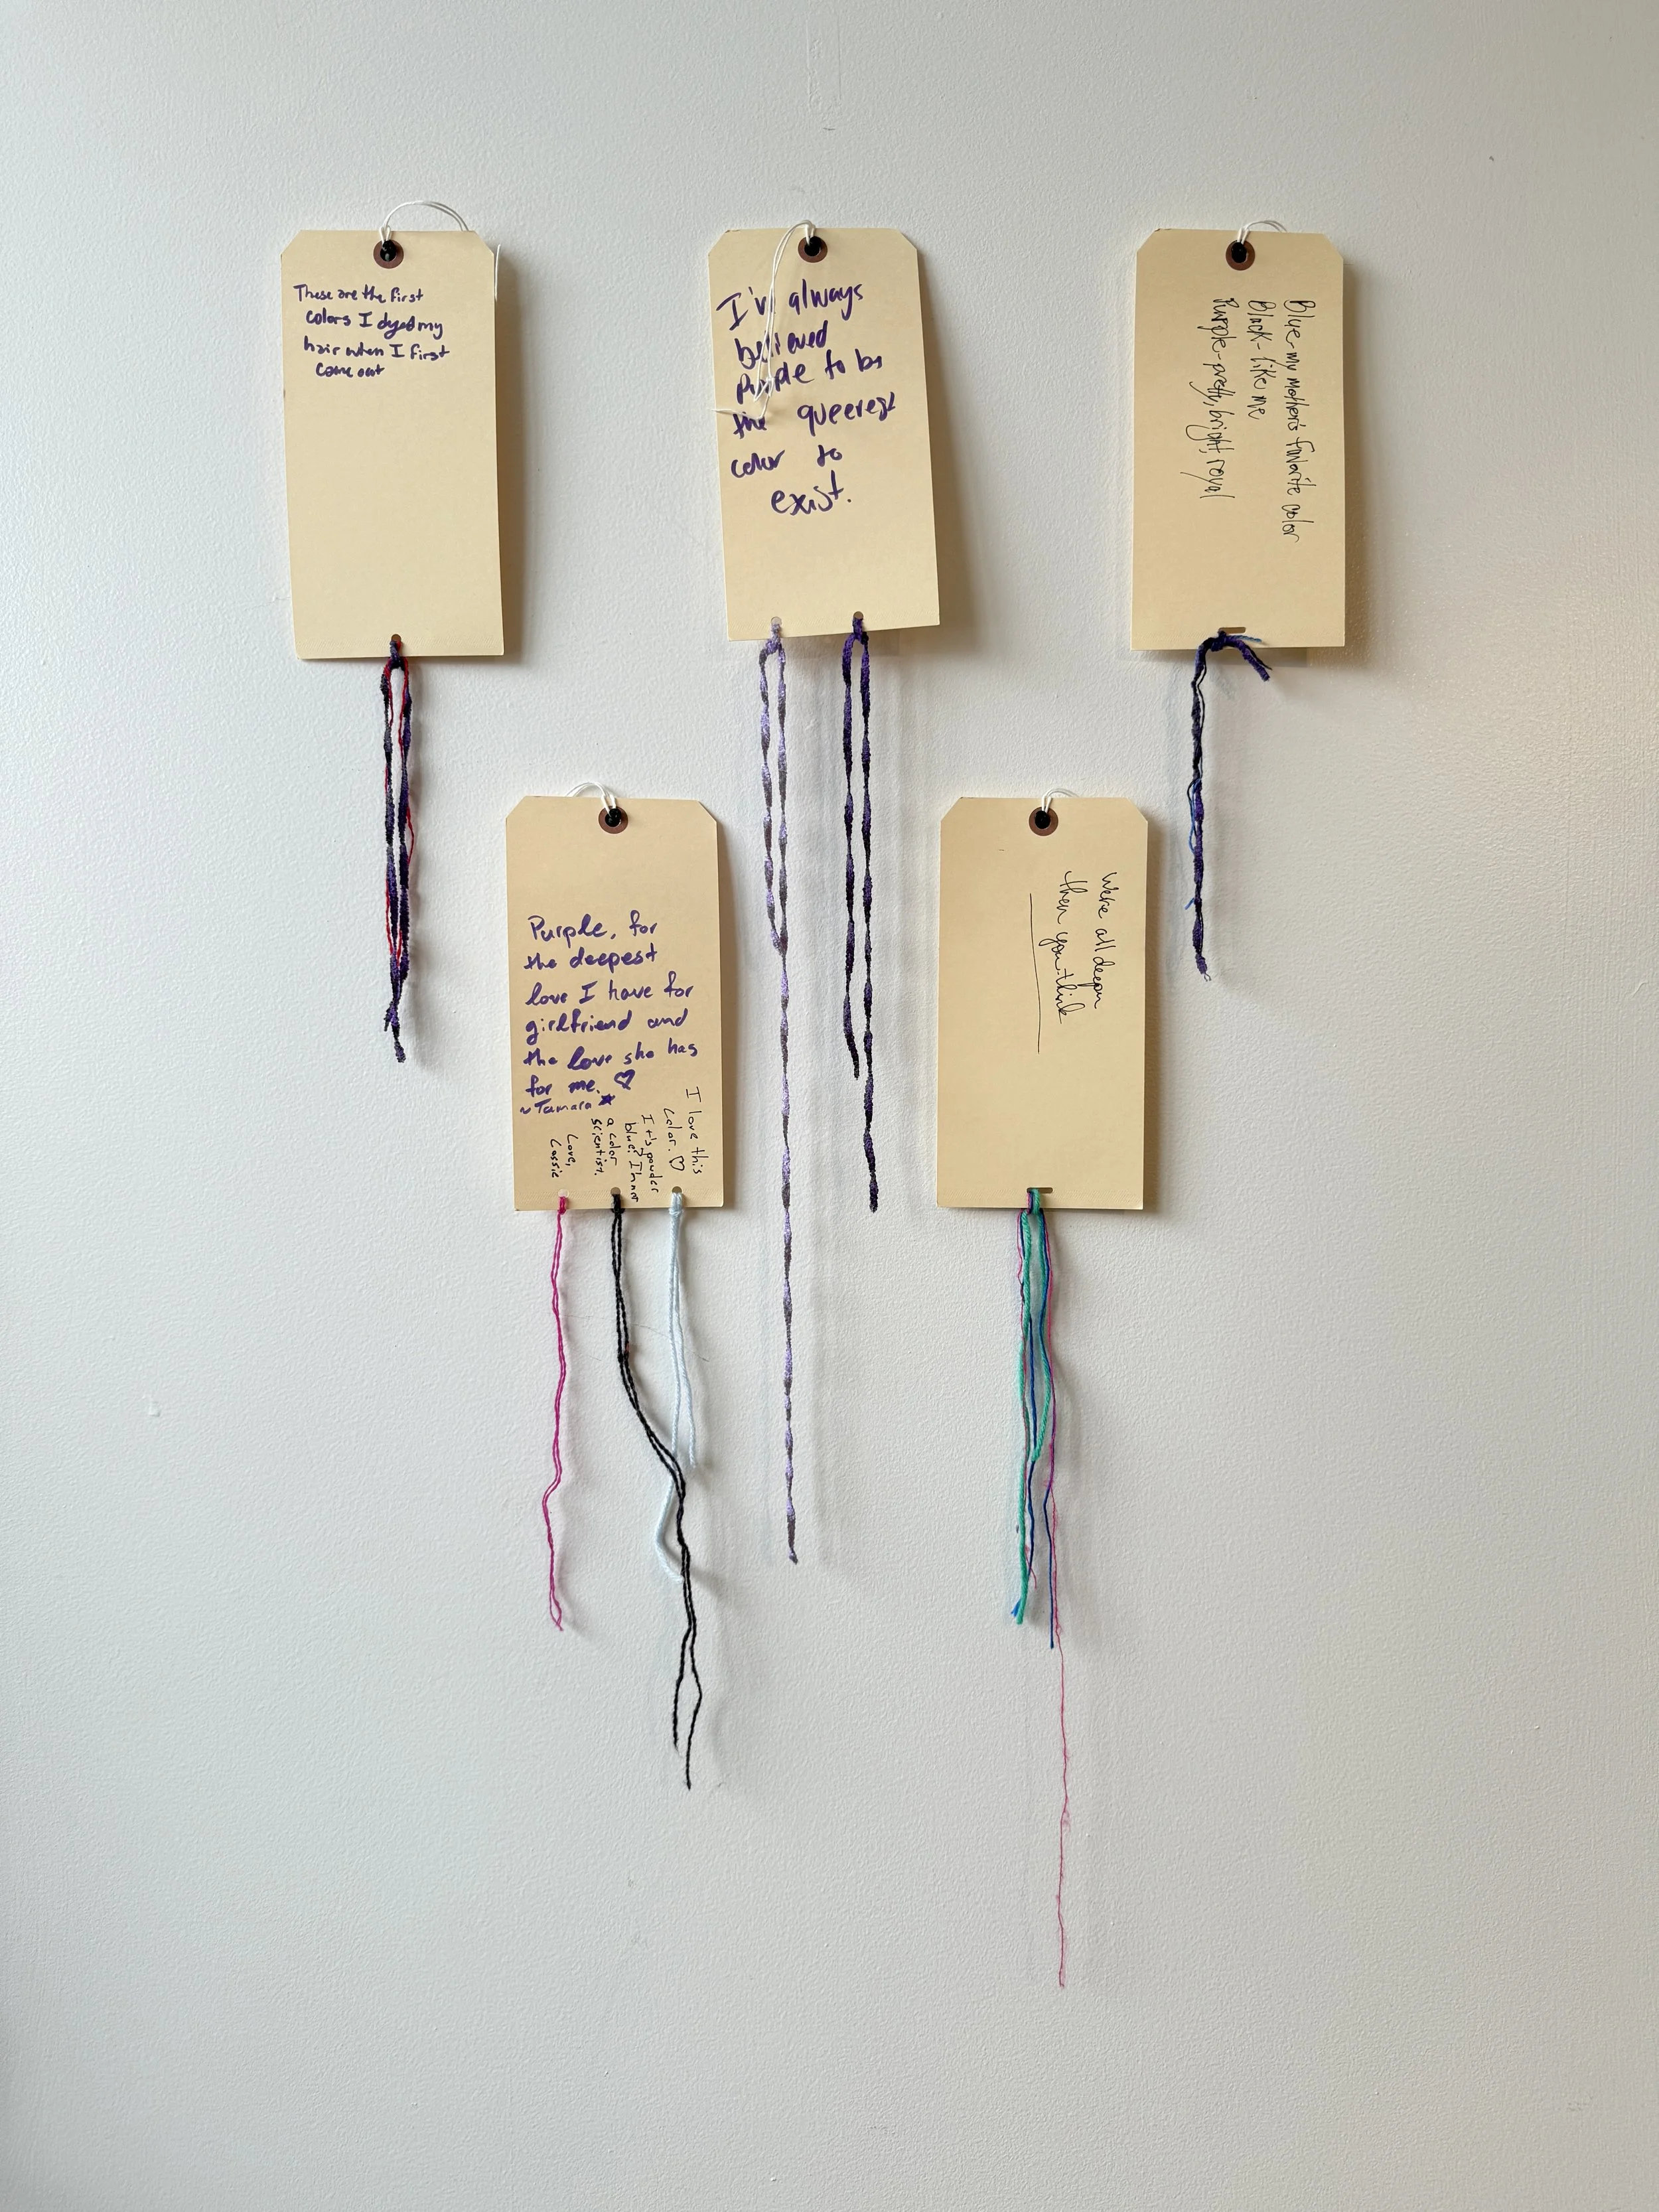 These are the first
colors I dyed my
hair when I first
came out
I've always
believed
purple to be
the queerest
color to
exist.
Blue-my mother's favorite color
Black-like me
Purple-pretty, bright, royal
Purple, for
the deepest
love I have for
girlfriend and
the love she has
for me. ♡
~Tamara ★
I love this
color. ♡
It's powder
blue. I'm
a color
scientist.
Love,
Cassie
We're all deeper
then you think